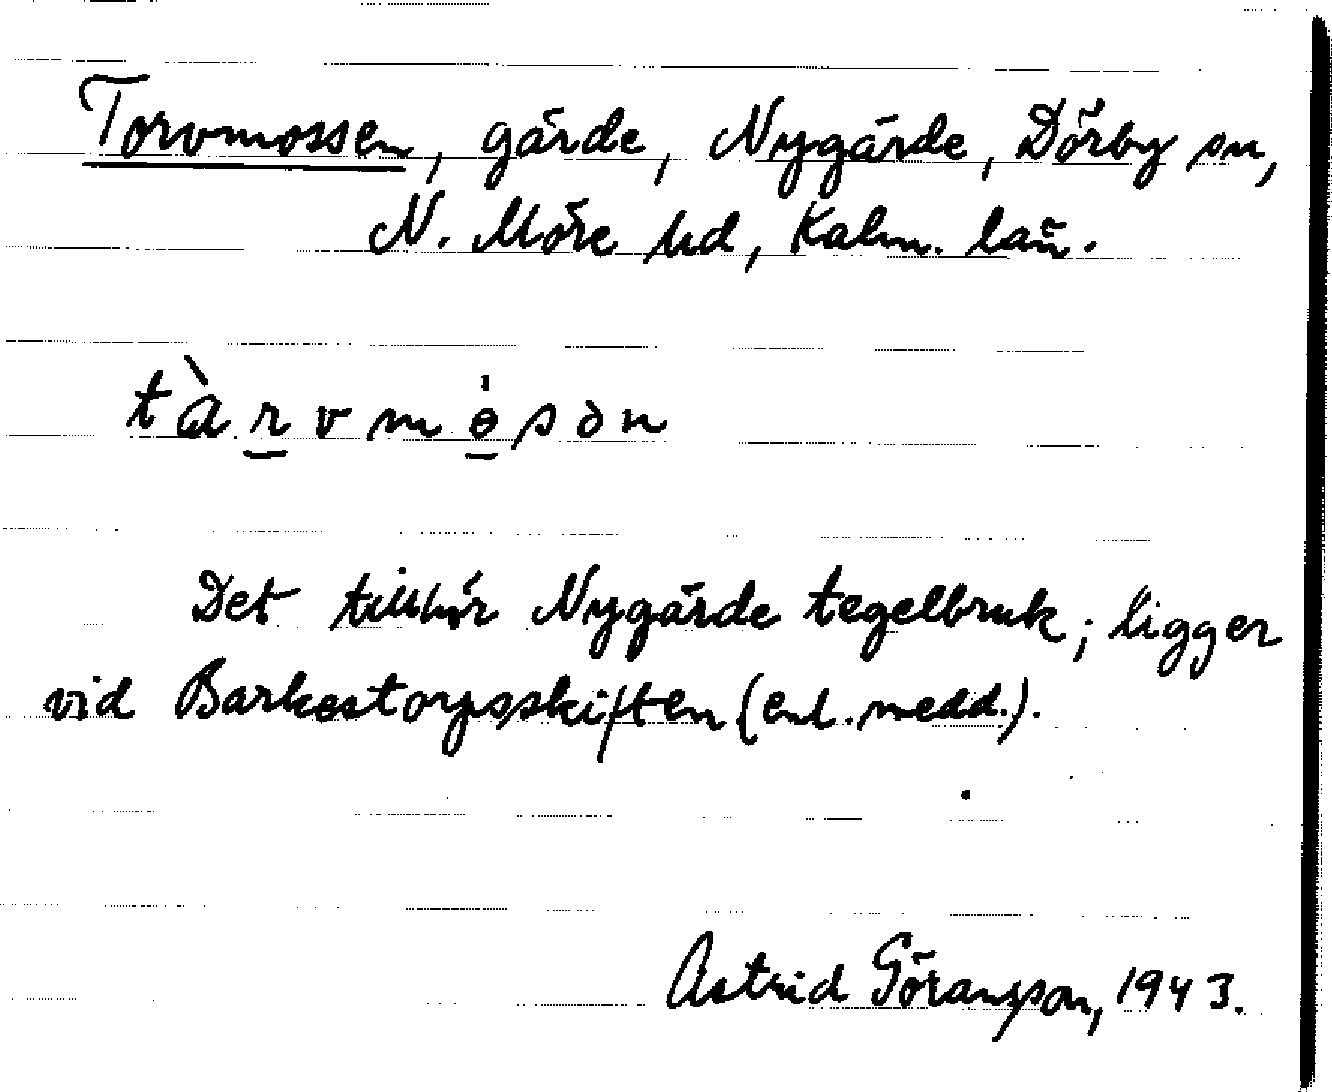 Torvmossen, gärde, Nygärde, Dörby sn,
N. Möre hd, Kalm. län.
tàrvmòsən
Det tillhör Nygärde tegelbruk; ligger
vid Barkestorpsskiften (enl. medd.).
Astrid Göransson, 1943.